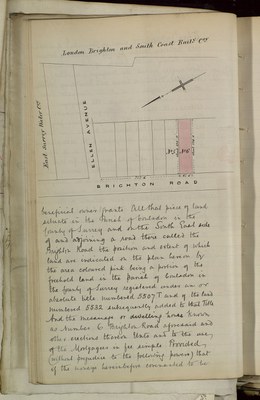 London Brighton and South Coast Rail. Coy
East Surrey Water Co
ELLEN AVENUE
BRIGHTON ROAD
beneficial owner grants All that piece of land
situate in the Parish of Coulsdon in the
County of Surrey and on the South East side
of and adjoining a road there called the
Brighton Road the position and extent of which
land are indicated on the plan hereon by
the area coloured pink being a portion of the
freehold land in the Parish of Coulsdon in
the County of Surrey registered under an
absolute title numbered and of the land
numbered subsequently added to that Title
And the messuage or dwelling house known
as Number 6 Brighton Road aforesaid and
other erections thereon Unto and to the use
of the Mortgagees in fee simple Provided
(without prejudice to the following powers) that
if the moneys hereinbefore covenanted to be